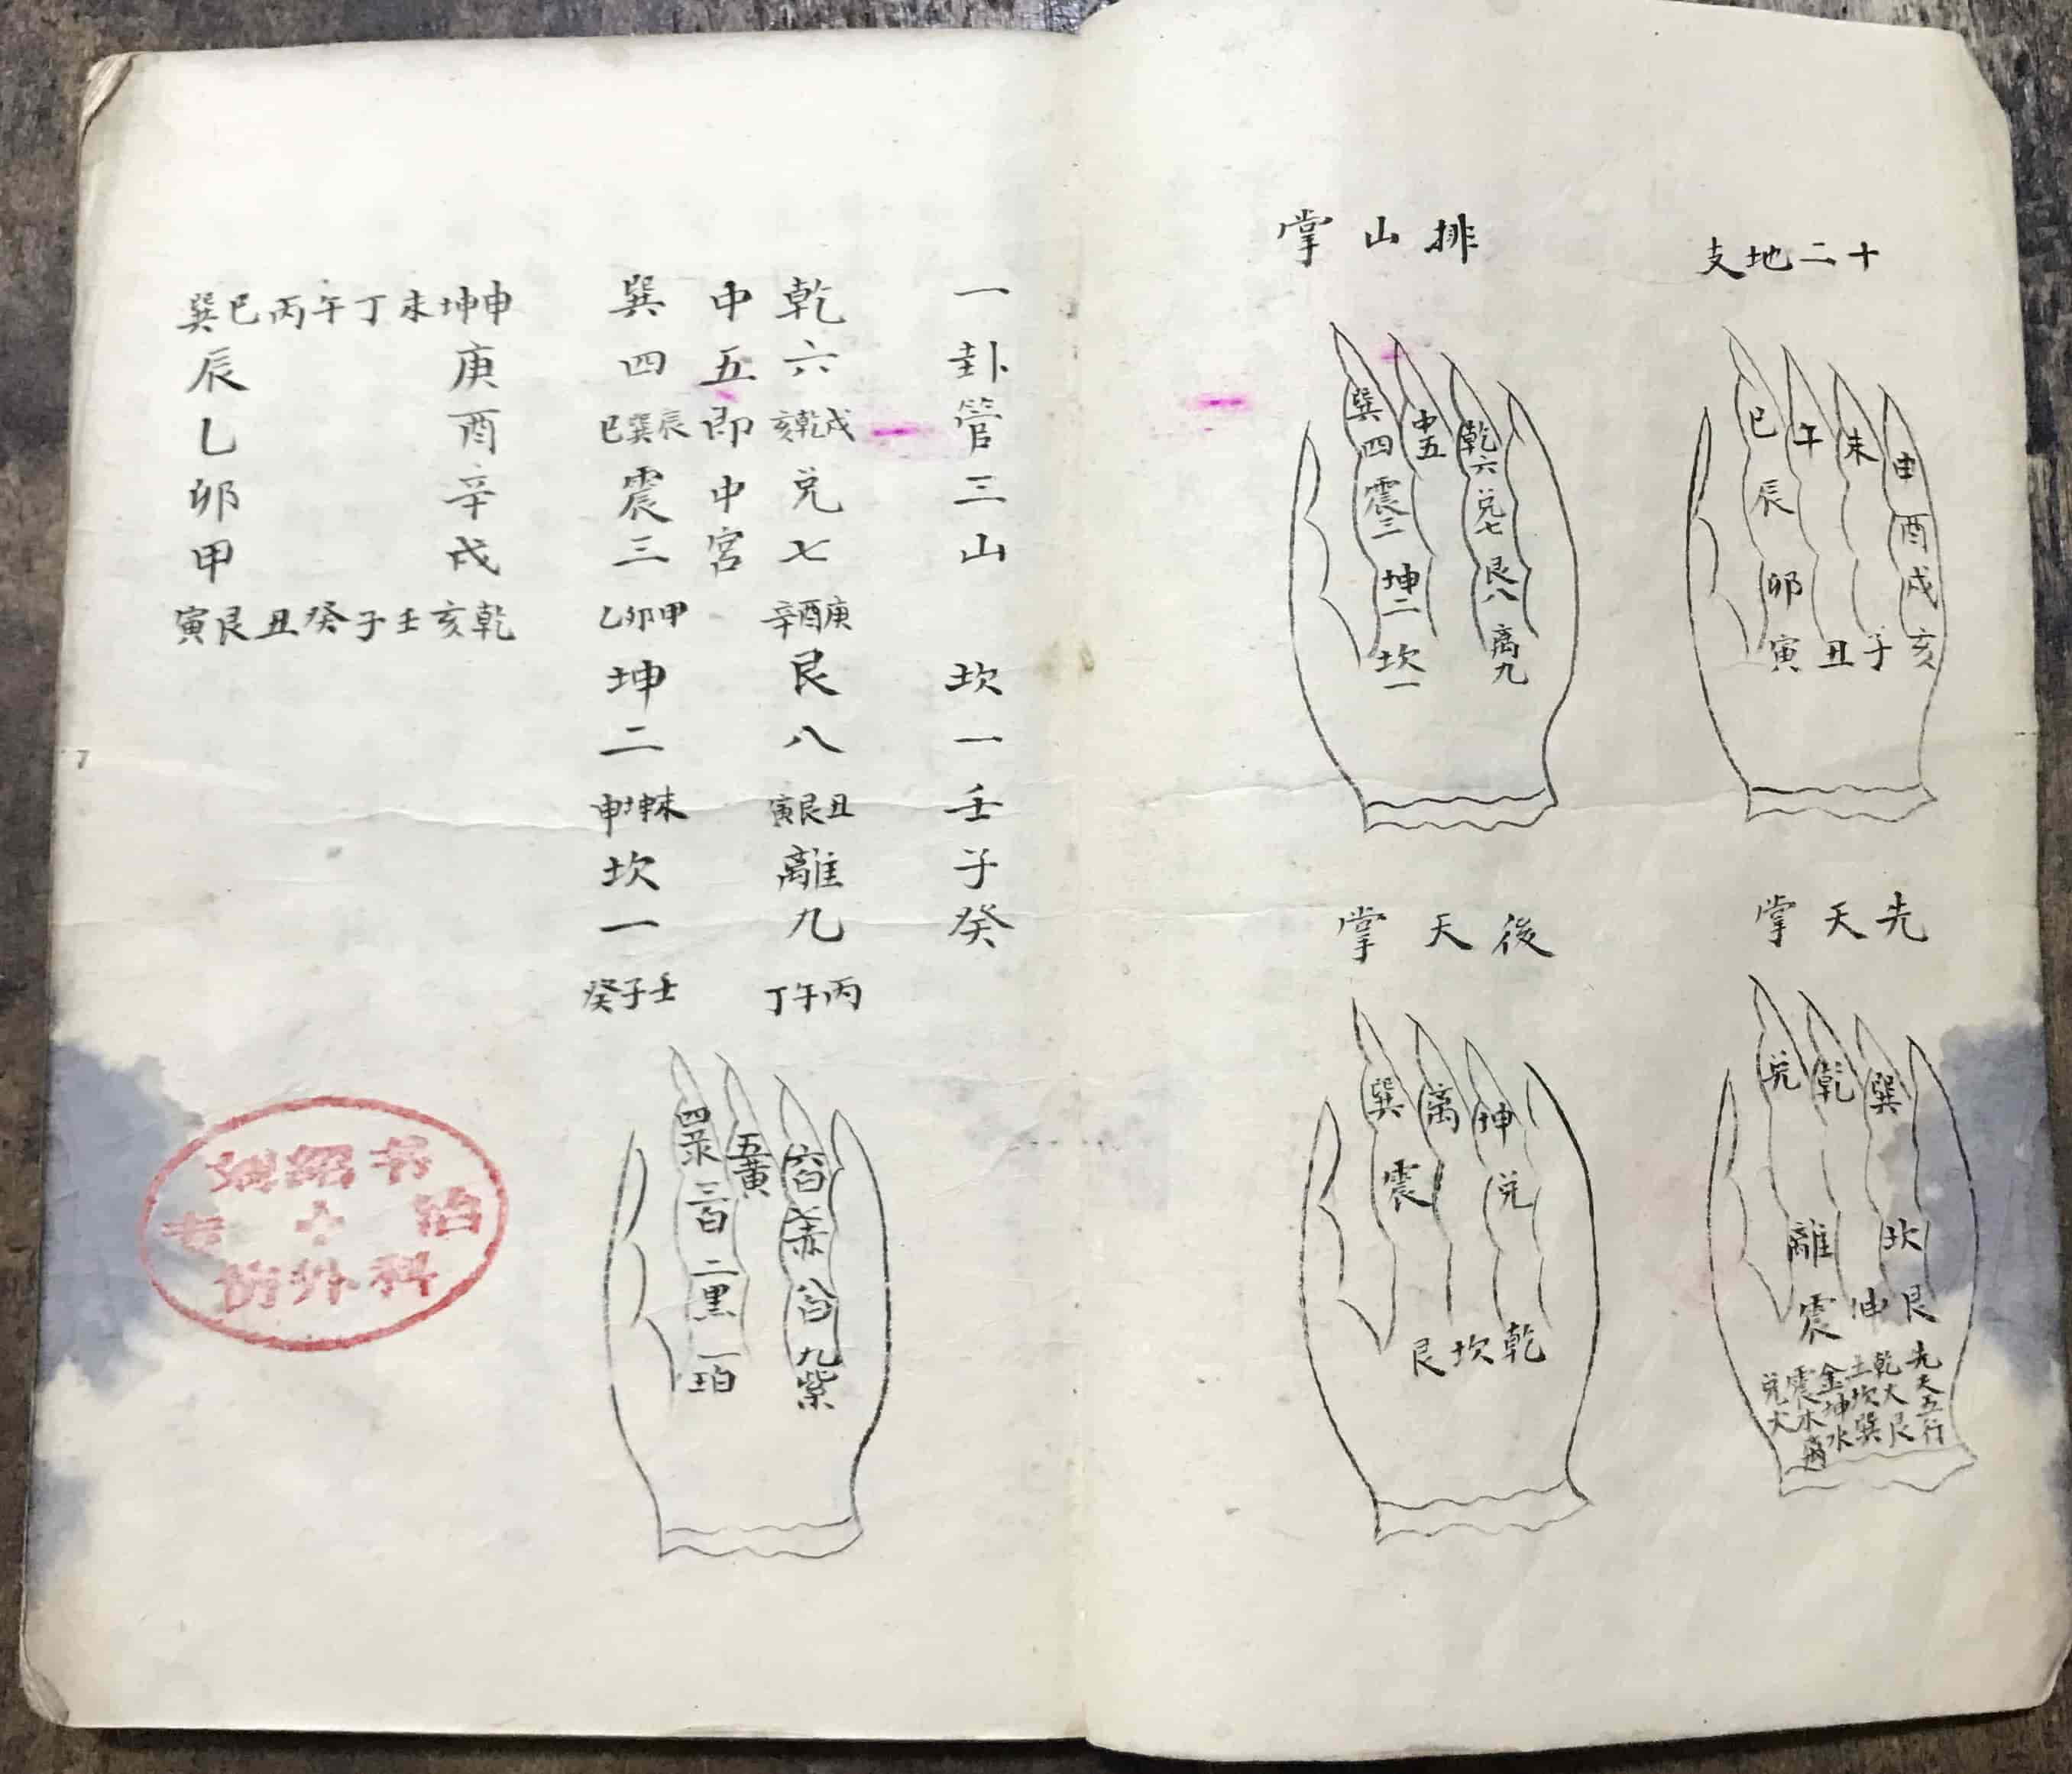 十二地支
巳
午
未
申
辰
酉
卯
戌
寅丑子亥
排山掌
巽四
中五
乾六
震三
兌七
坤二
艮八
坎一
離九
先天掌
兌
乾
巽
離
坎
震坤艮
先天五行
後天掌
巽
離
坤
震
兌
艮坎乾
一卦管三山 坎一壬子癸
乾六戌乾亥兌七庚酉辛艮八丑艮寅離九丙午丁
中五即中宮
巽四辰巽巳震三甲卯乙坤二未坤申坎一壬子癸
巽巳丙午丁未坤申
辰 庚
乙 酉
卯 辛
甲 戌
寅艮丑癸子壬亥乾
四录
五黄
六白
三百
七赤
二黑
八白
一白
九紫
治
外科